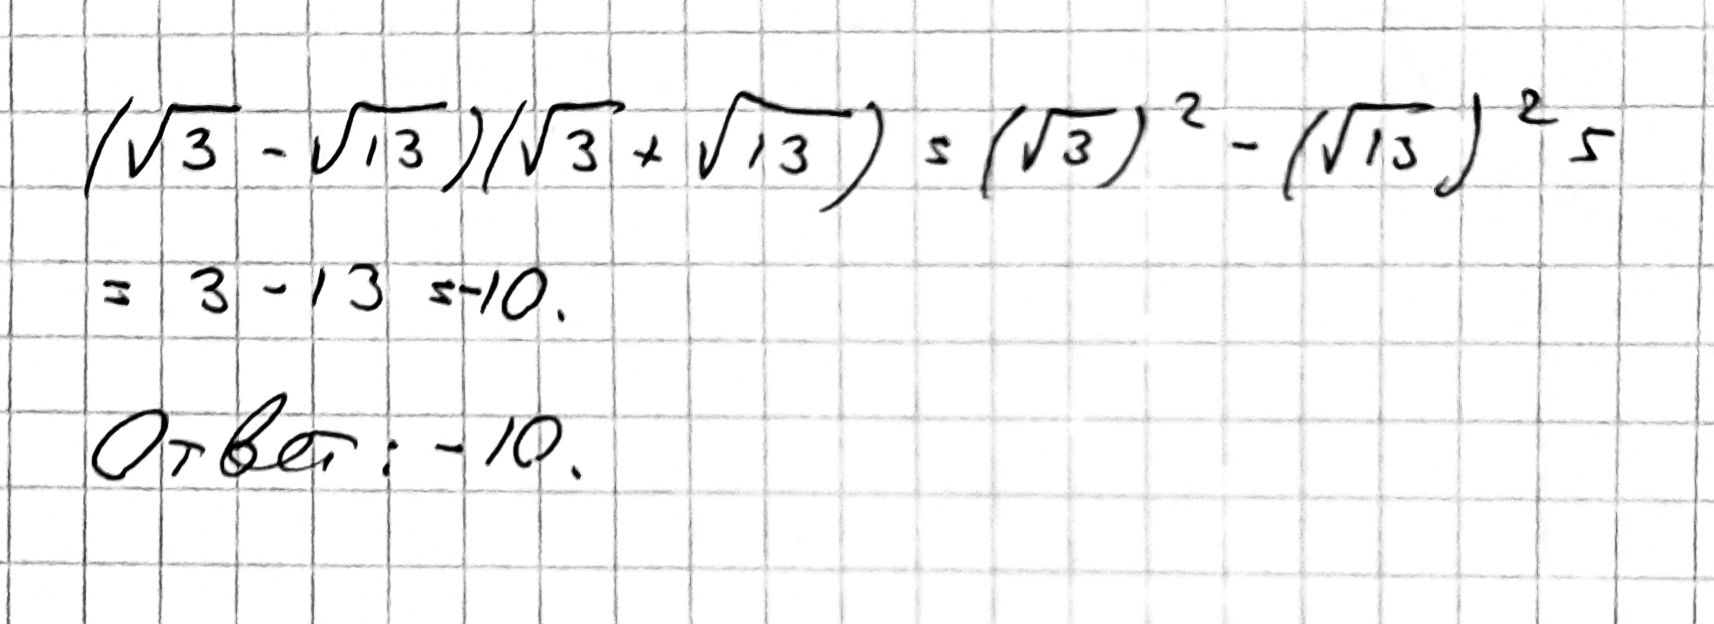 (√3 - √13)(√3 + √13) = (√3)² - (√13)² =
= 3 - 13 = -10.
Ответ: -10.